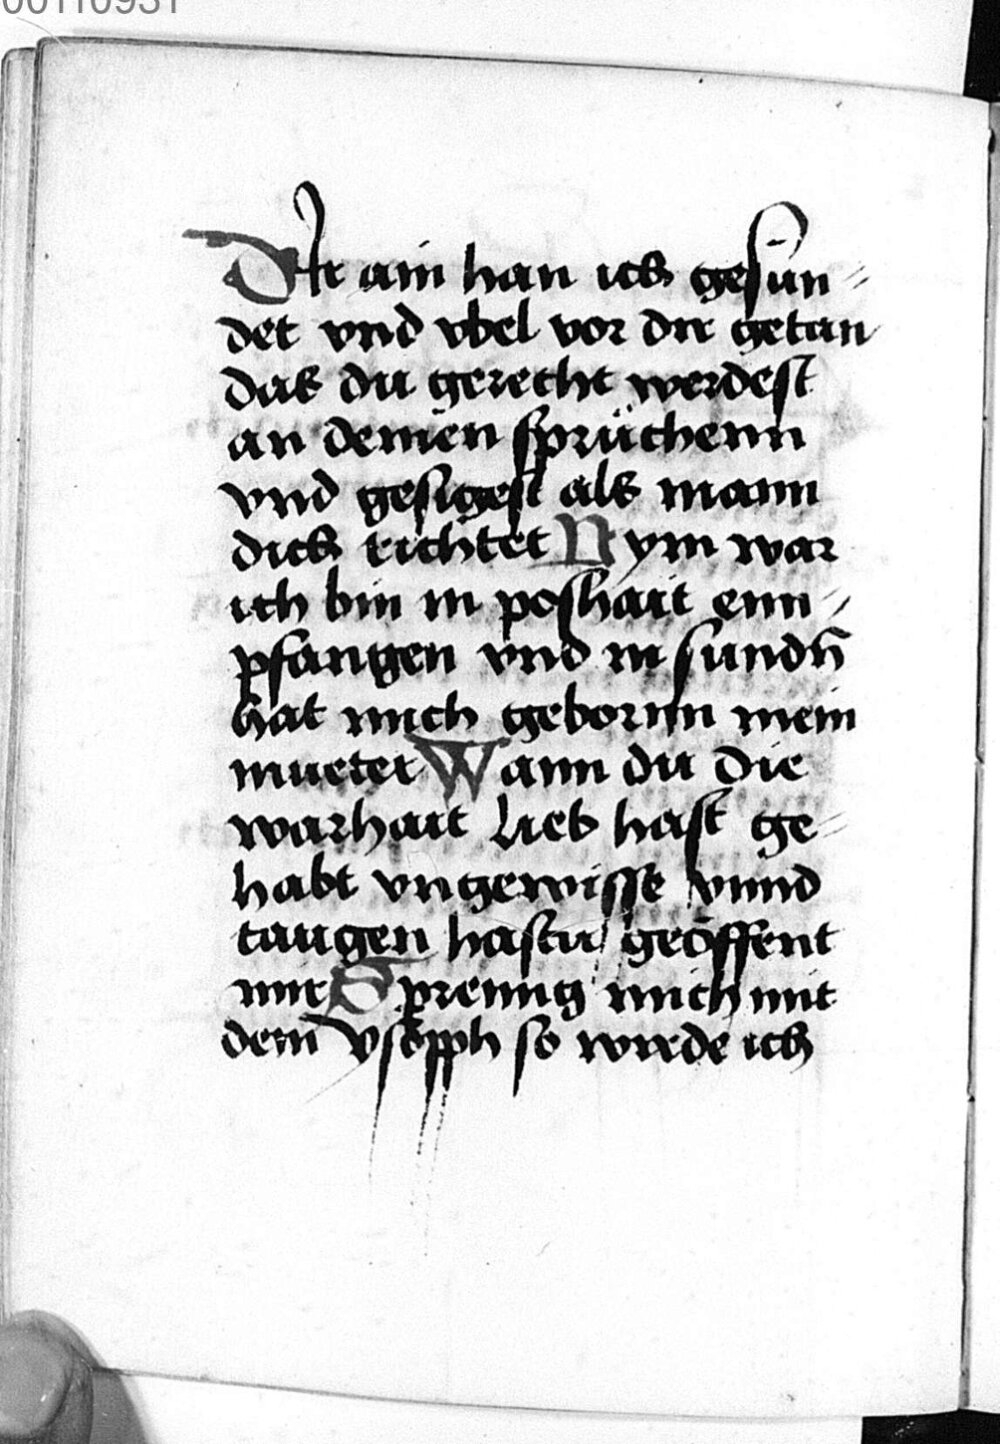 00110931
Dir ain han ich gesün-
det vnd vbel vor dir getan
das du gerecht werdest
an deinen sprüchenn
vnd gesigest als mann
dich richtet Nym war
ich bin in poshait enn-
pfangen vnd in sundn̄
hat mich gebornn mein
mueter Wann du die
warhait lieb hast ge-
habt vngewisse vnnd
taugen hastu geöffent
mir Spreng mich mit
dem ysopph so wirde ich